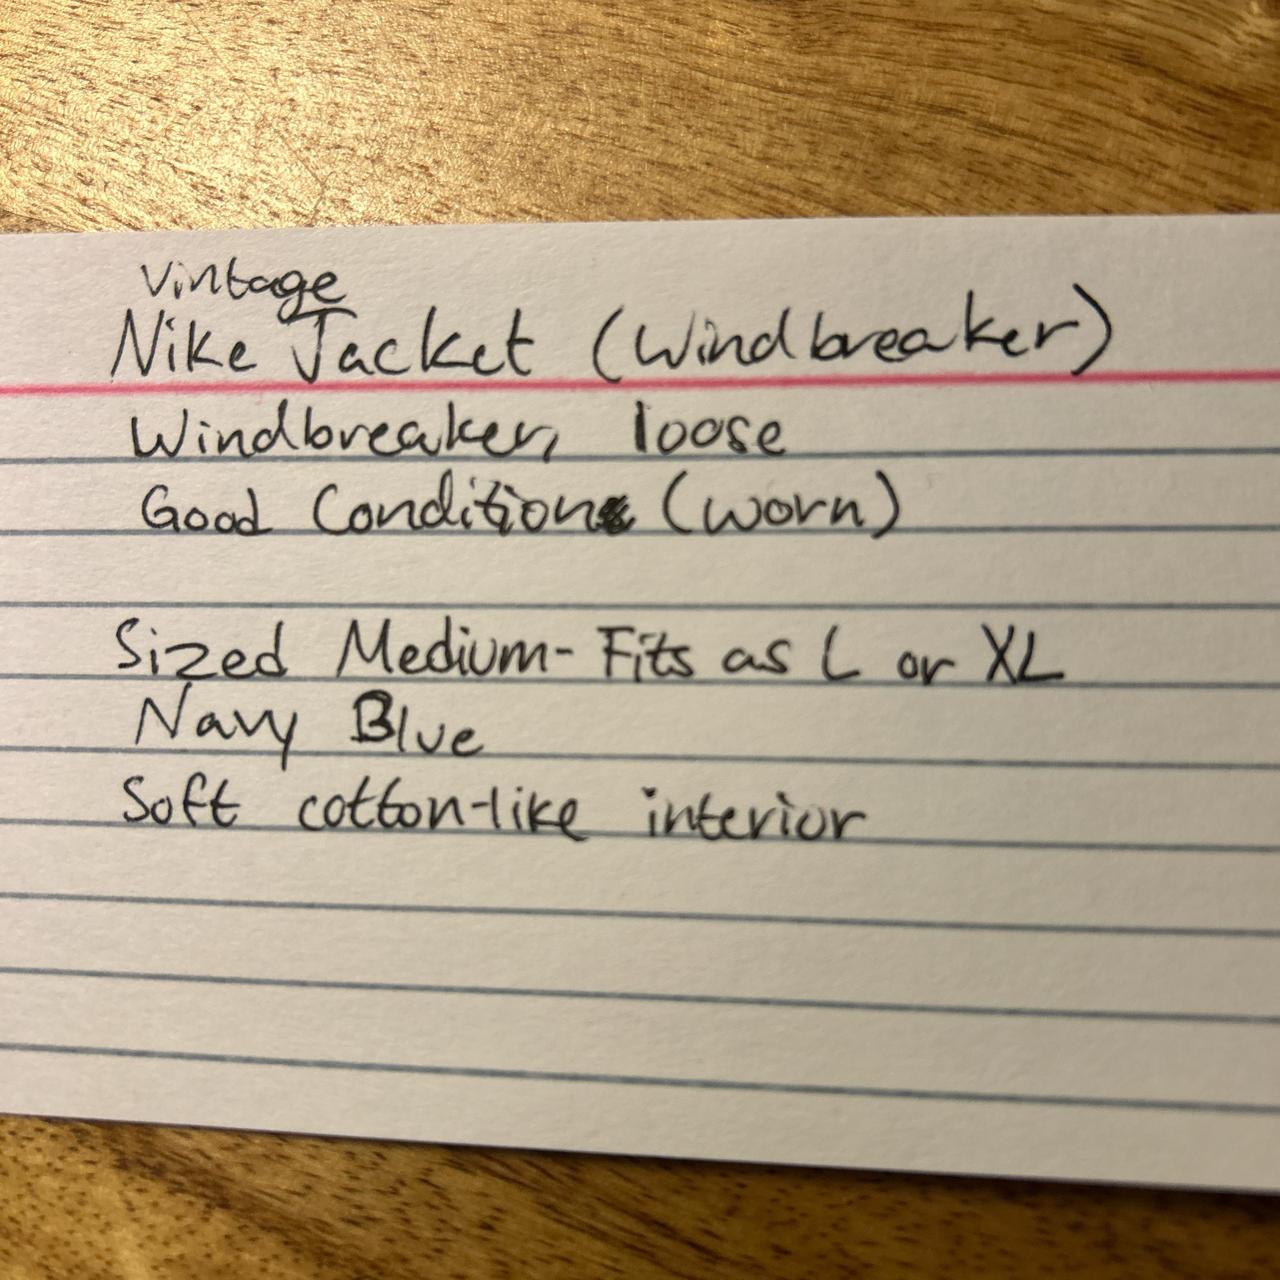 Vintage
Nike Jacket (Windbreaker)
Windbreaker, loose
Good Condition (worn)
Sized Medium- Fits as L or XL
Navy Blue
Soft cotton-like interior